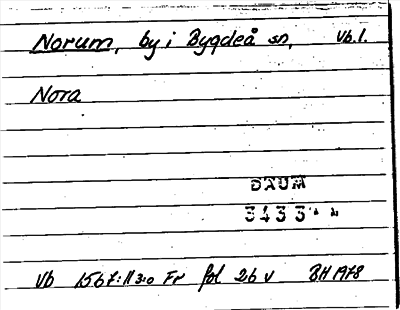 Norum, by i Bygdeå sn, Vb.l.
Nora
DAUM
3433
Vb 1567:11 3:0 Fr fol 26 v BH 1978